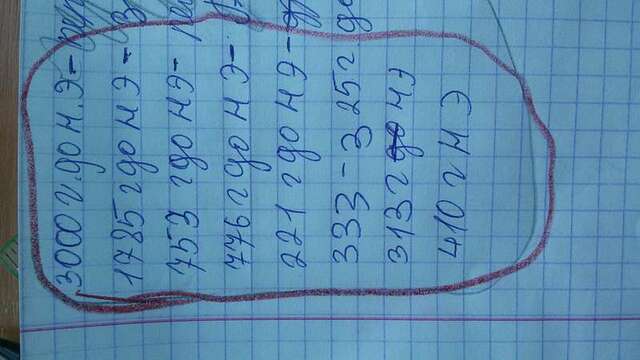 3000 г. до н. э -
1785 г до н э -
753 г до н э -
776 г до н э -
221 г до н э -
333 - 325 г до
313 г до н э
410 г н э